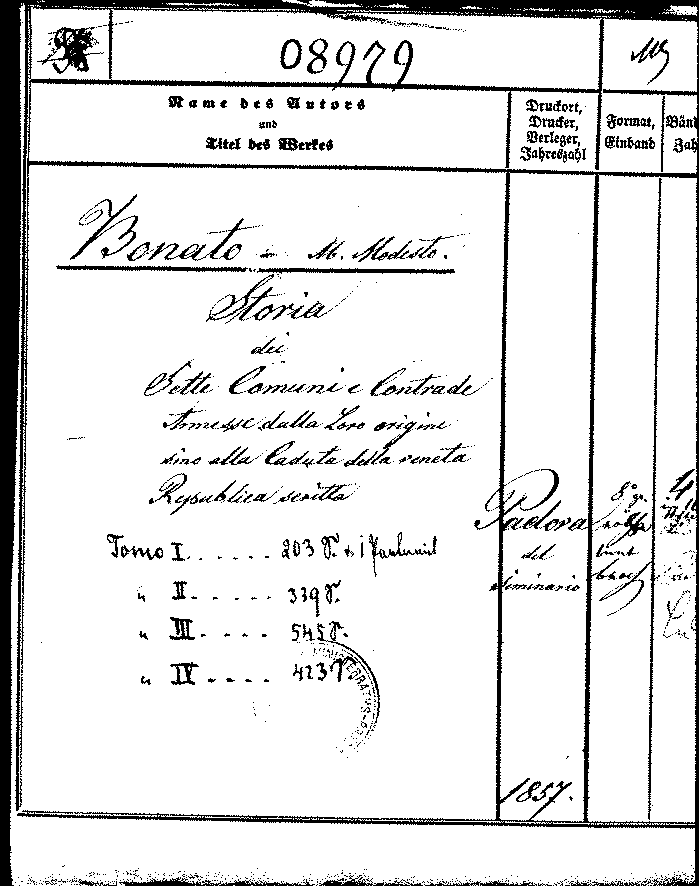 08979
Name des Autors
und
Titel des Werkes
Druckort,
Drucker,
Verleger,
Jahreszahl
Format,
Einband
Bonato = M. Modesto.
Storia
dei
Sette Comuni e Contrade
Annesse dalla Loro origine
sino alla Caduta della veneta
Republica scritta
Padova
del
Seminario
1857.
8° gr.
Tomo I ..... 203 S. + 1
" II ..... 339 S.
" III .... 545 S.
" IV .... 423 S.